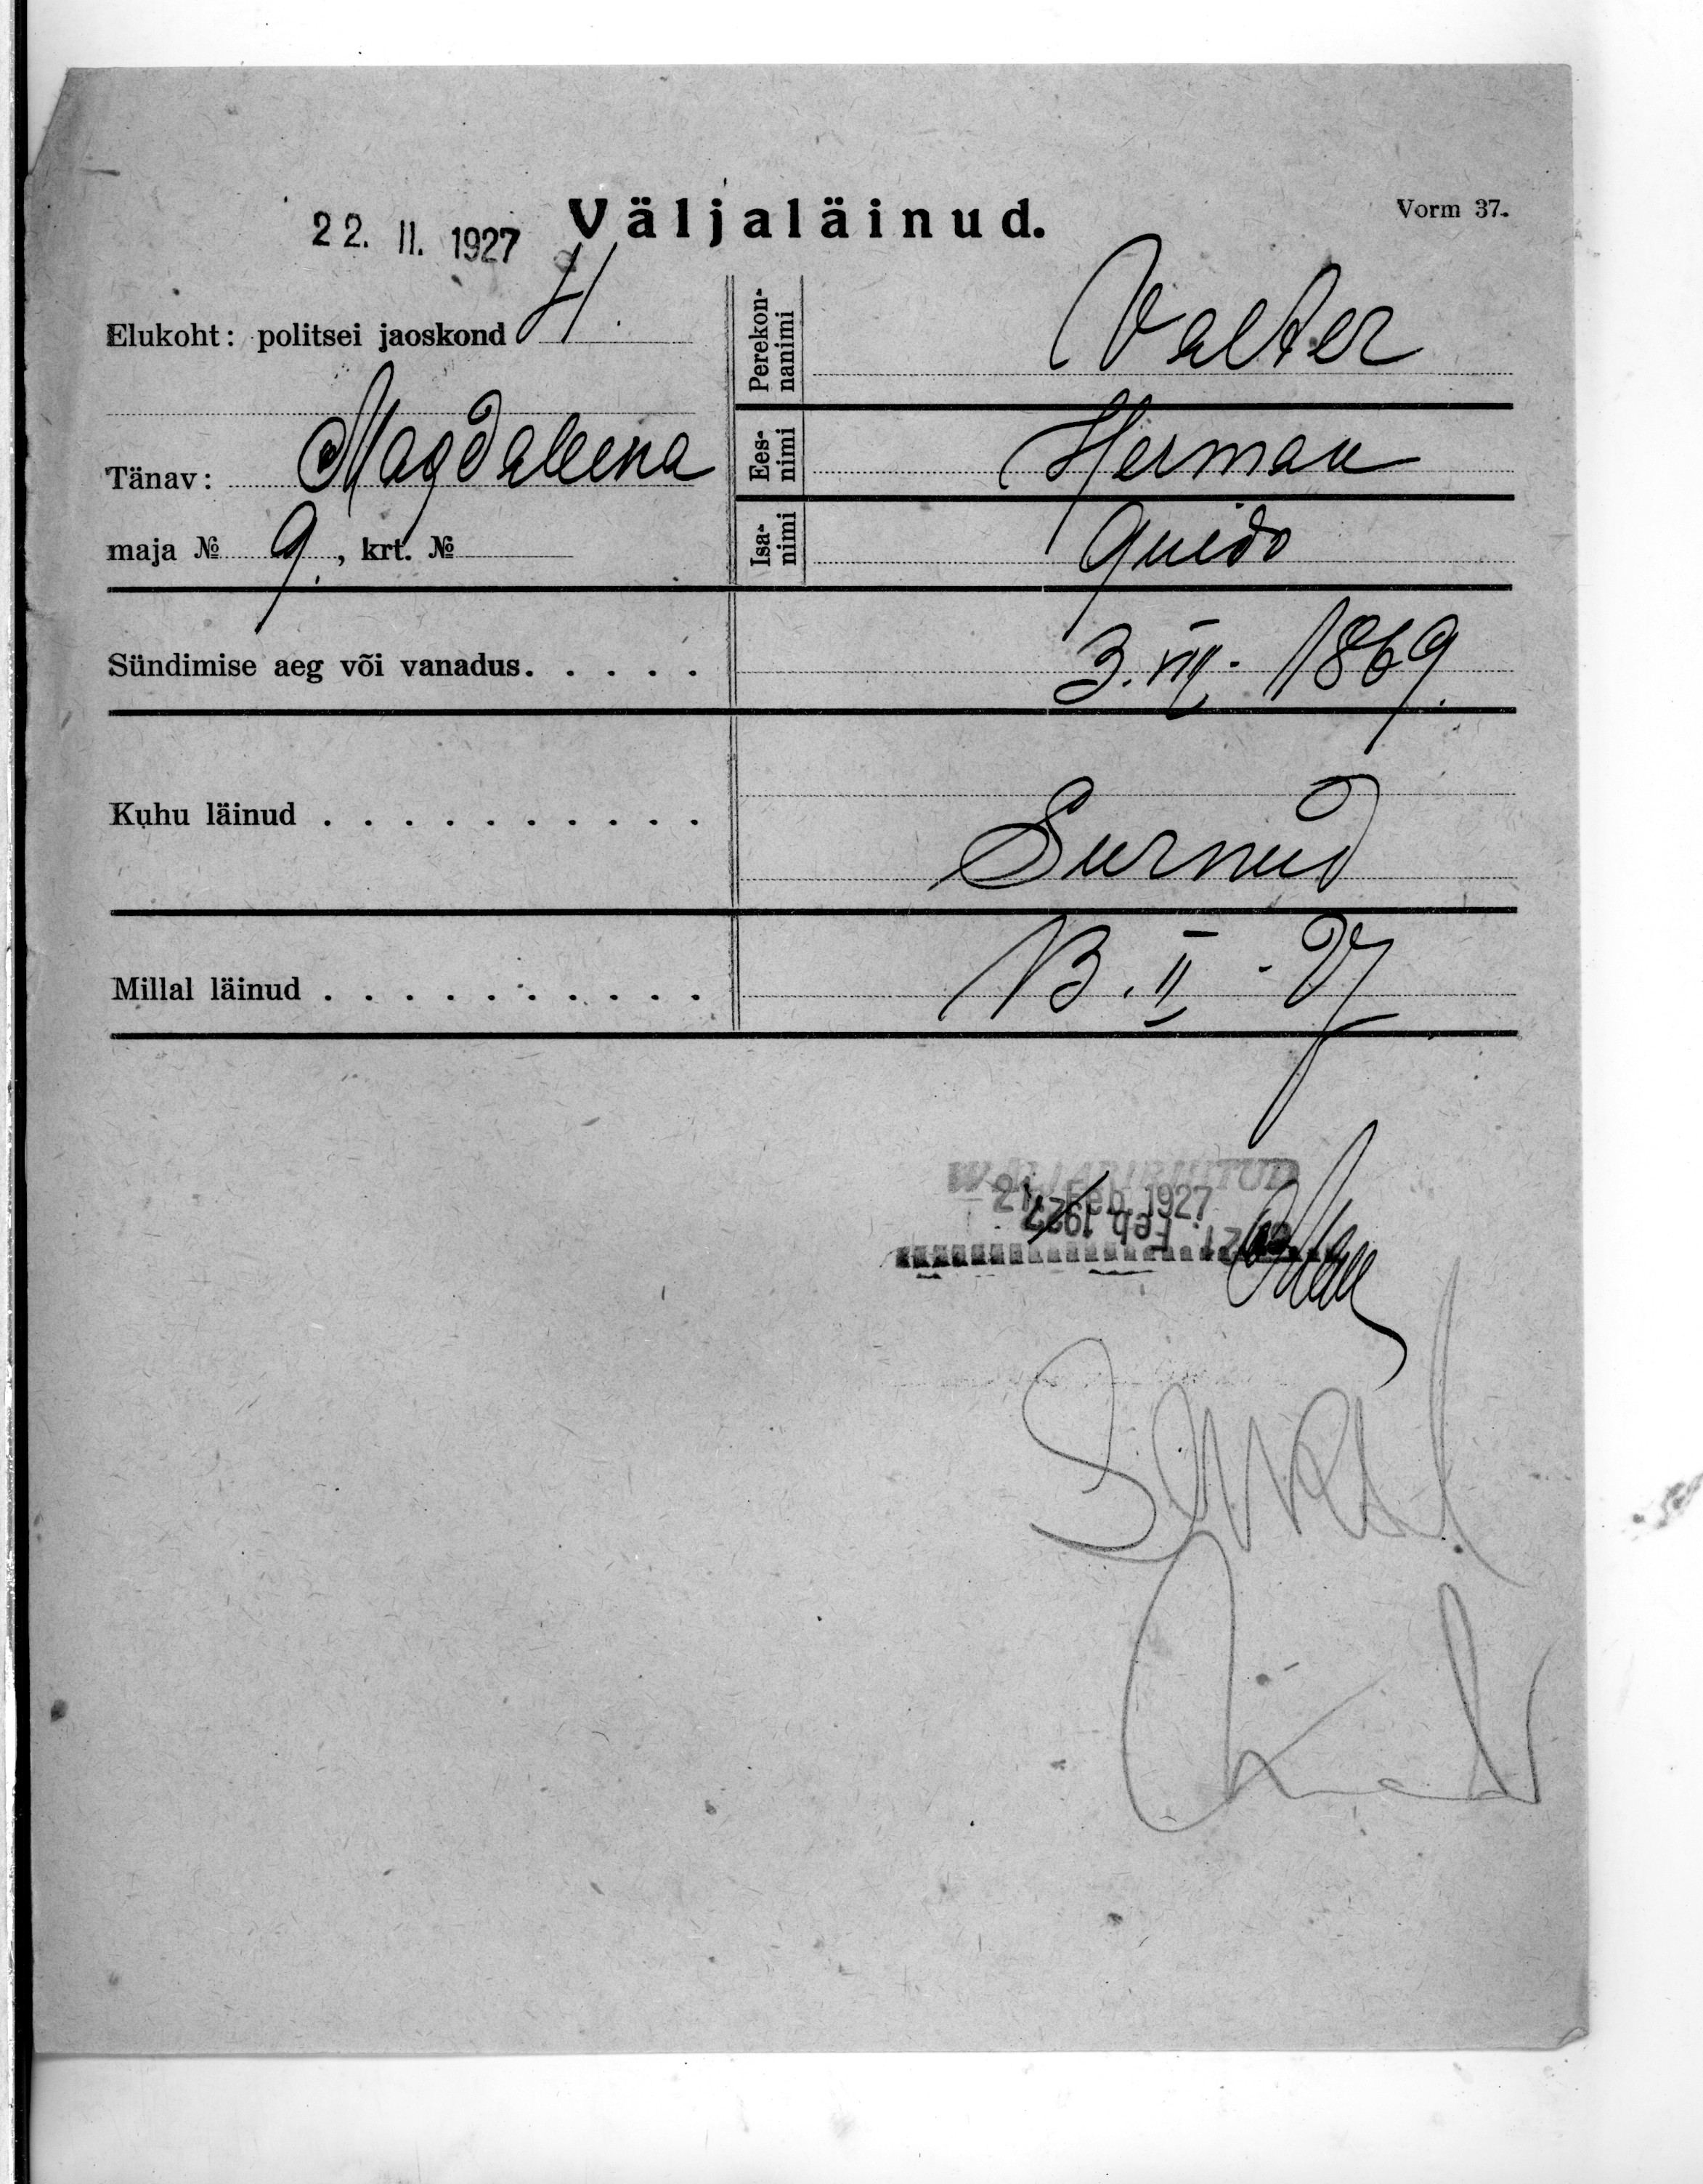 22. II. 1927 Väljaläinud. Vorm 37.
Elukoht: politsei jaoskond 4.
Tänav: Magdaleena
maja № 9., krt. №
Perekon-
nanimi Valter
Ees-
nimi Herman
Isa-
nimi Guido
Sündimise aeg või vanadus. . . . . 3. VIII. 1869.
Kuhu läinud . . . . . . . . . . Surnud
Millal läinud . . . . . . . . . . 13. II. 27
21. Feb. 1927
21. Feb 1927